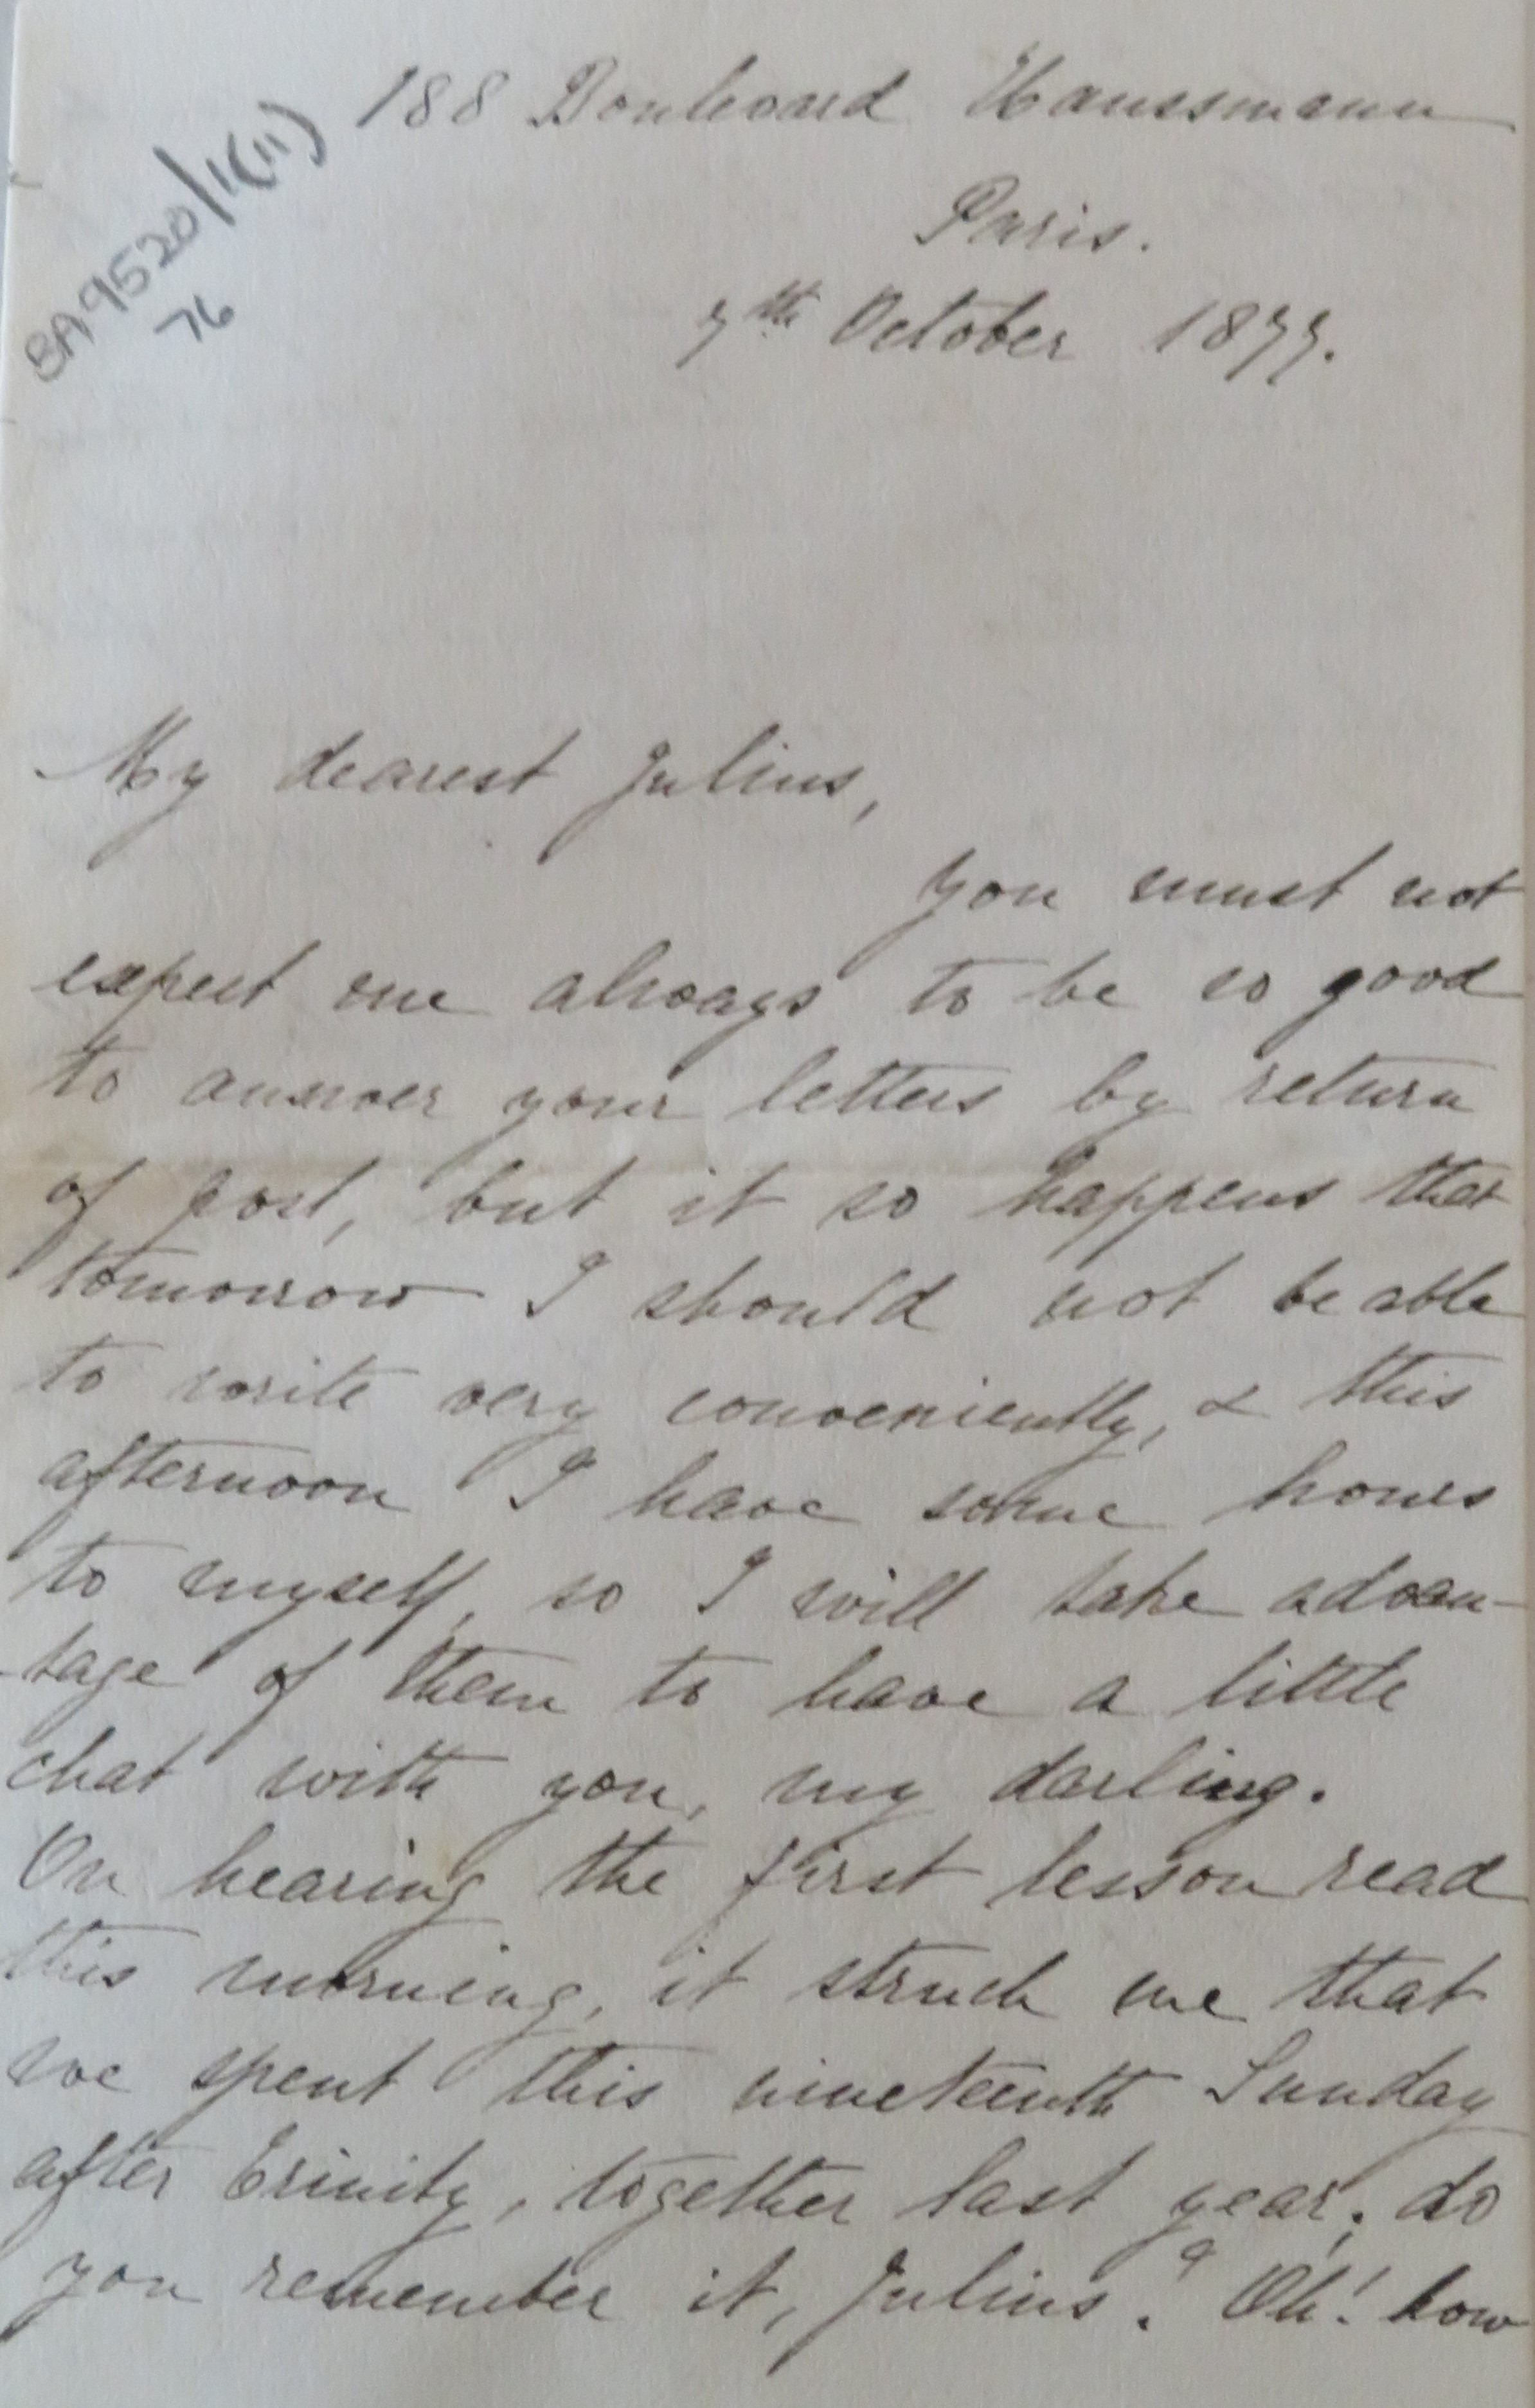 188 Boulevard Haussmann
BA9520/1(11)
76
Paris.
7th October 1877.
My dearest Julius,
you must not
expect me always to be so good
to answer your letters by return
of post, but it so happens that
tomorrow I should not be able
to write very conveniently, & this
afternoon I have some hours
to myself, so I will take advan-
-tage of them to have a little
chat with you, my darling.
On hearing the first lesson read
this morning, it struck me that
we spent this nineteenth Sunday
after Trinity, together last year; do
you remember it, Julius? Oh! how